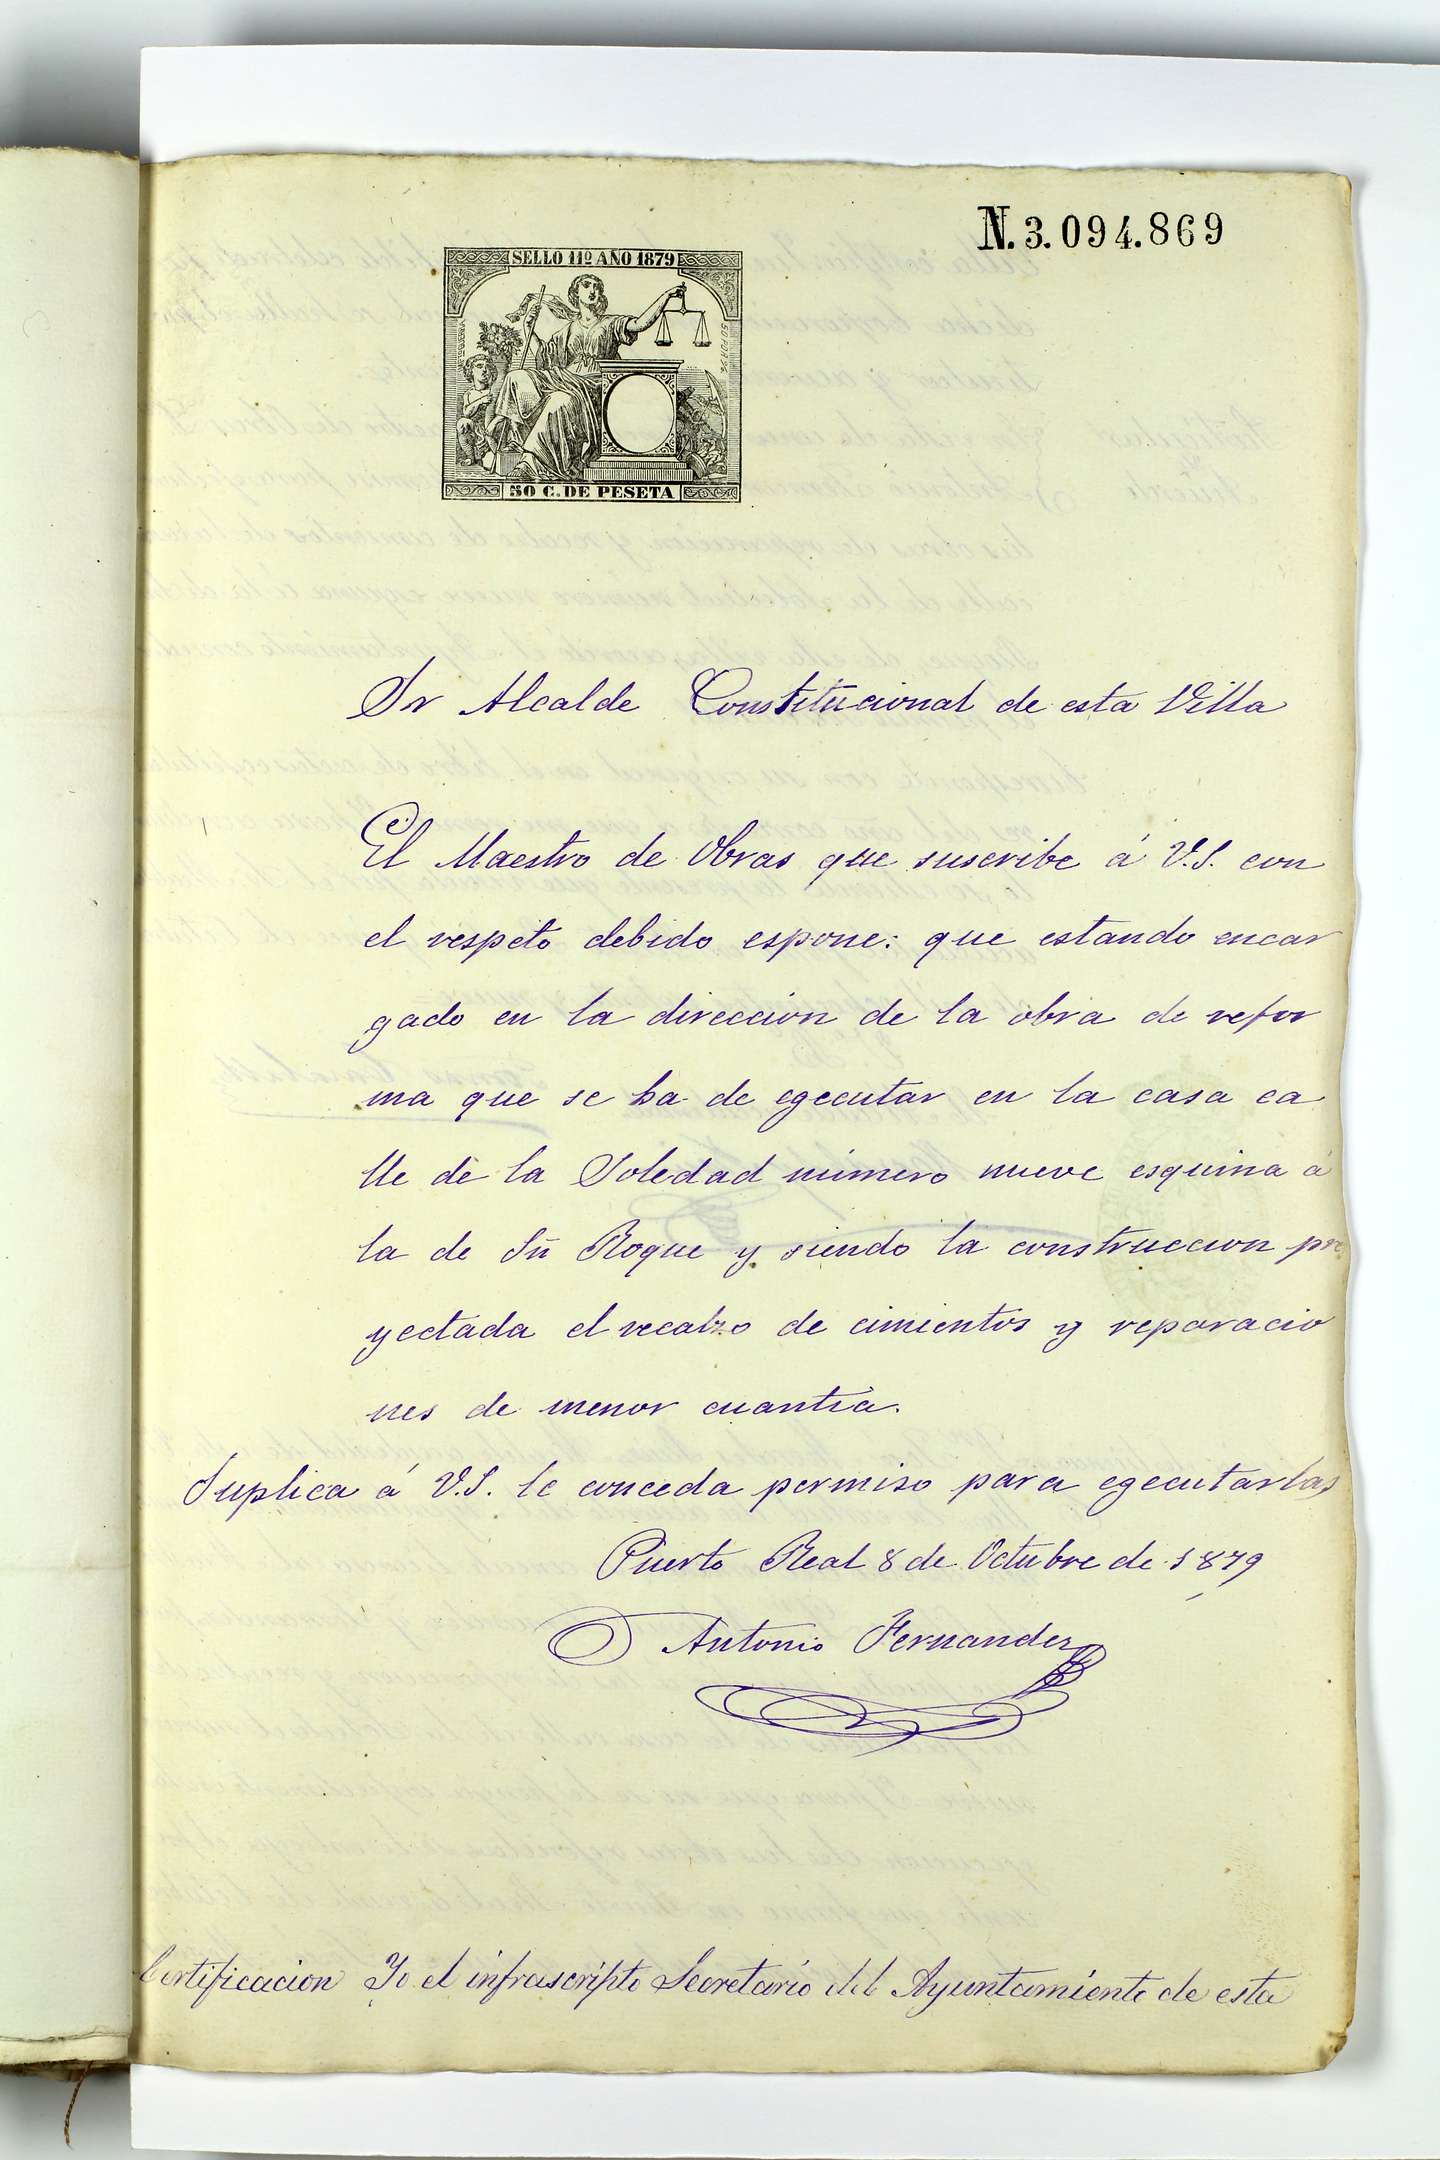 N. 3.094.869
SELLO 11º AÑO 1879
50 C. DE PESETA
Sr Alcalde Constitucional de esta Villa
El Maestro de Obras que suscribe á V.S. con
el respeto debido espone: que estando encar
gado en la direccion de la obra de refor
ma que se ha de egecutar en la casa ca
lle de la Soledad número nueve esquina á
la de Sn̄ Roque y siendo la construccion pro
yectada el recalzo de cimientos y reparacio
nes de menor cuantia.
Suplica á V.S. le conceda permiso para egecutarlas
Puerto Real 8 de Octubre de 1879
Antonio Fernandez
Certificacion Yo el infrascripto Secretario del Ayuntamiento de esta